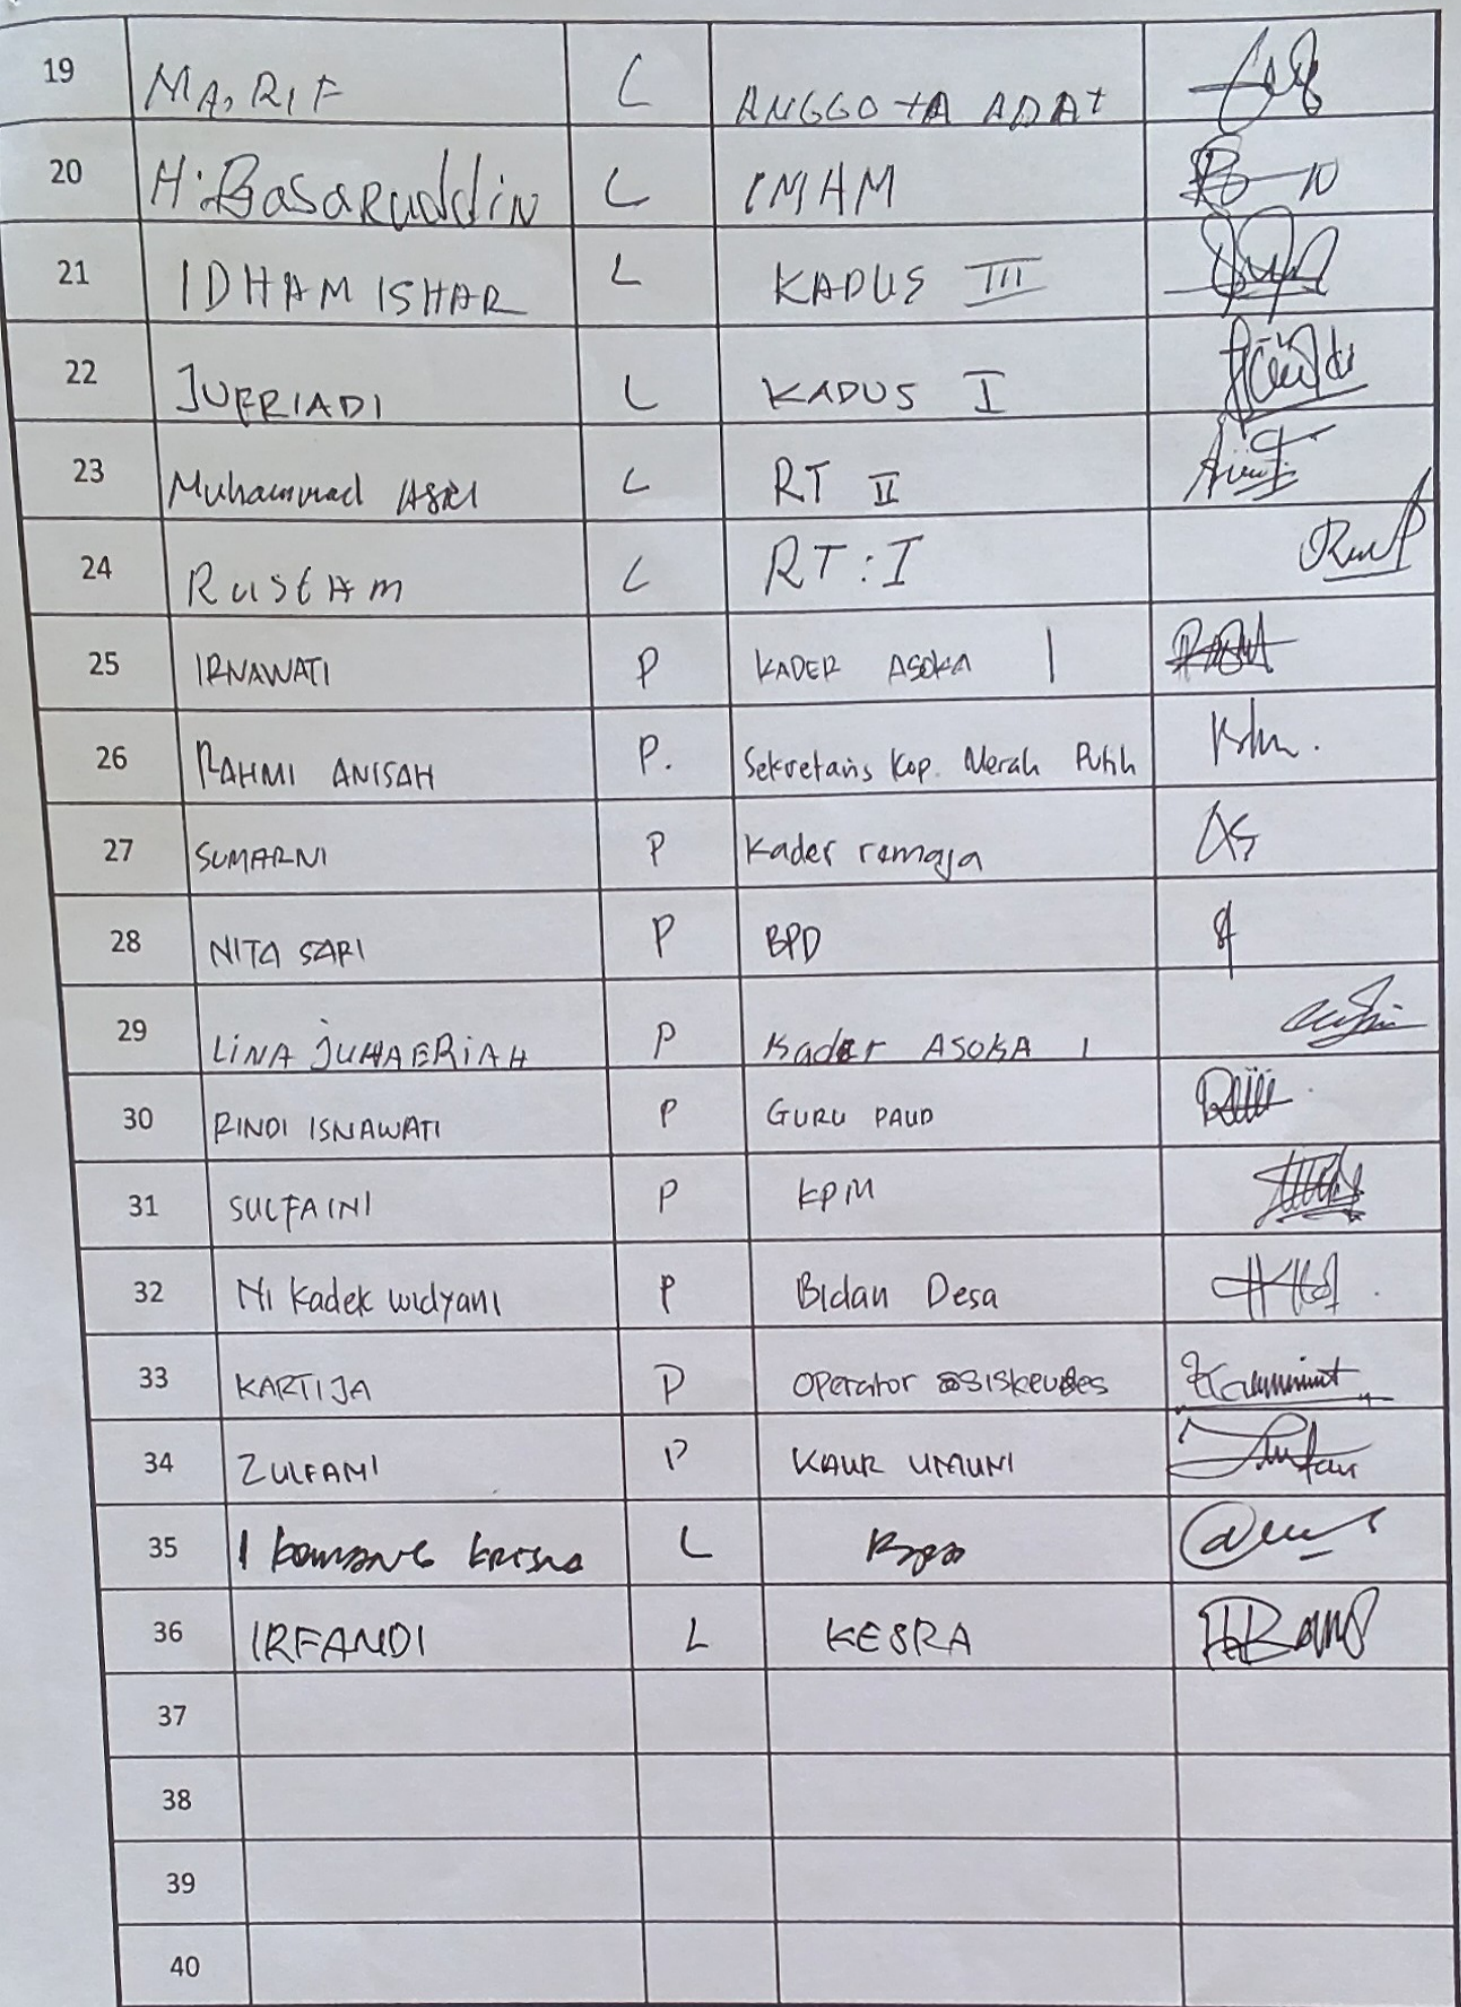 19 MA,RIF L ANGGOTA ADAT
20 H. Basaruddin L IMAM
21 IDHAM ISHAR L KADUS III
22 JUFRIADI L KADUS I
23 Muhammad ASRI L RT II
24 RustAm L RT : I
25 IRNAWATI P KADER ASOKA I
26 RAHMI ANISAH P. Sekretaris Kop. Merah Putih
27 SUMARNI P Kader remaja
28 NITA SARI P BPD
29 LiNA JUHAERiAH P Kader ASOKA I
30 RINDI ISNAWATI P GURU PAUD
31 SULFAINI P KPM
32 Ni Kadek widyani P Bidan Desa
33 KARTIJA P Operator siskeudes
34 ZULFAMI P KAUR UMUM
35 I komang L
36 IRFANDI L KESRA
37
38
39
40